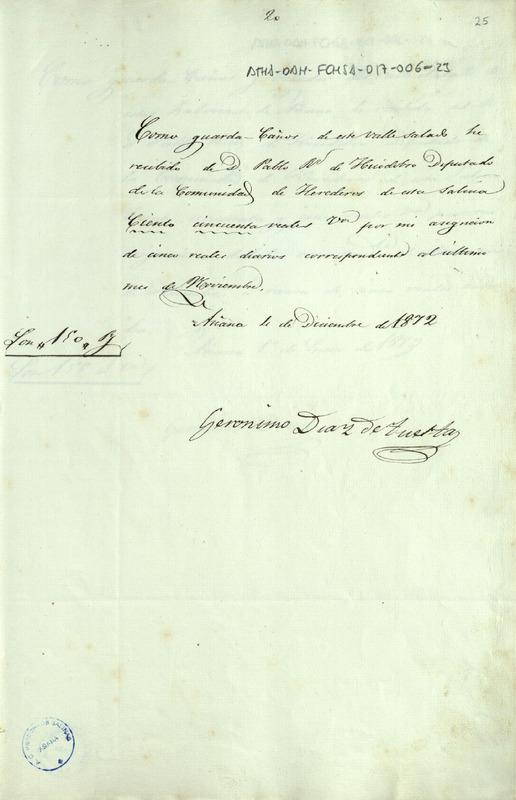 20
25
ATHA-DAH-FCHSA-017-006-23
Como guarda-Caños de este Valle salado, he
recibido de D. Pablo Rz de Huidobro Deputado
de la Comunidad de Herederos de esta Salina
Ciento cincuenta reales Von por mi asignacion
de cinco reales diarios correspondiente al último
mes de Noviembre.
Añana 1o de Diciembre de 1872
Son "150" R
Geronimo Diaz de Tuesta
SALINAS
AÑANA